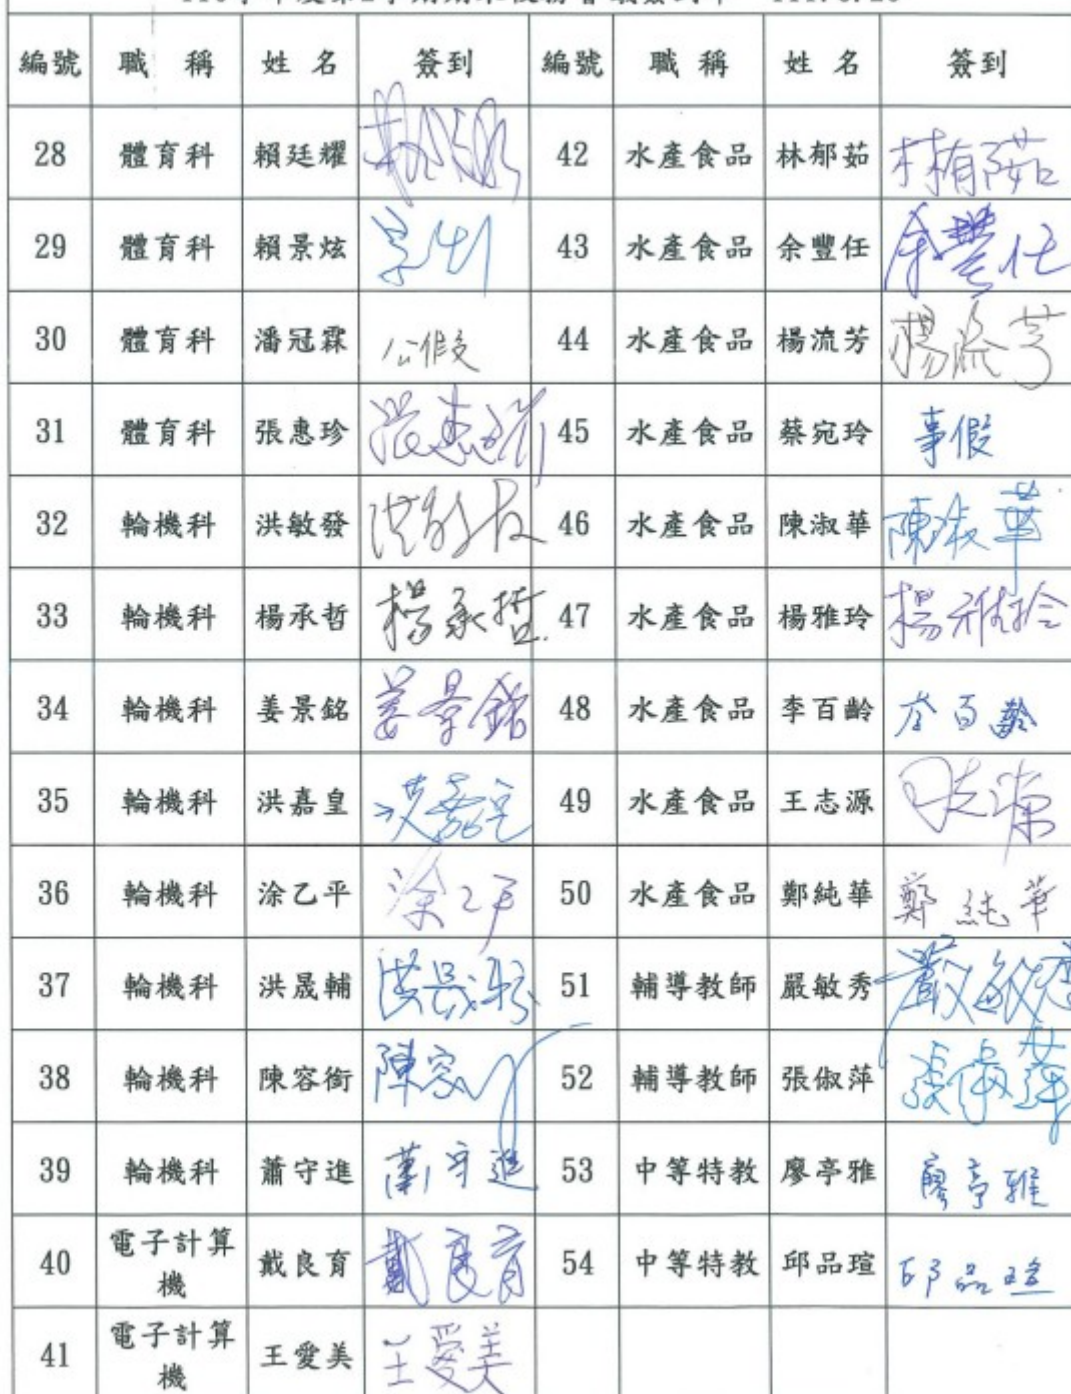 編號 職稱 姓名 簽到 編號 職稱 姓名 簽到
28 體育科 賴廷耀 42 水產食品 林郁茹 林郁茹
29 體育科 賴景炫 43 水產食品 余豐任 余豐任
30 體育科 潘冠霖 公假 44 水產食品 楊流芳 楊流芳
31 體育科 張惠珍 張惠珍 45 水產食品 蔡宛玲 事假
32 輪機科 洪敏發 洪敏發 46 水產食品 陳淑華 陳淑華
33 輪機科 楊承哲 楊承哲 47 水產食品 楊雅玲 楊雅玲
34 輪機科 姜景銘 姜景銘 48 水產食品 李百齡 李百齡
35 輪機科 洪嘉皇 洪嘉皇 49 水產食品 王志源 王志源
36 輪機科 涂乙平 涂乙平 50 水產食品 鄭純華 鄭純華
37 輪機科 洪晟輔 洪晟輔 51 輔導教師 嚴敏秀 嚴敏秀
38 輪機科 陳容銜 陳容 52 輔導教師 張俶萍 張俶萍
39 輪機科 蕭守進 蕭守進 53 中等特教 廖亭雅 廖亭雅
40 電子計算機 戴良育 戴良育 54 中等特教 邱品瑄 邱品瑄
41 電子計算機 王愛美 王愛美